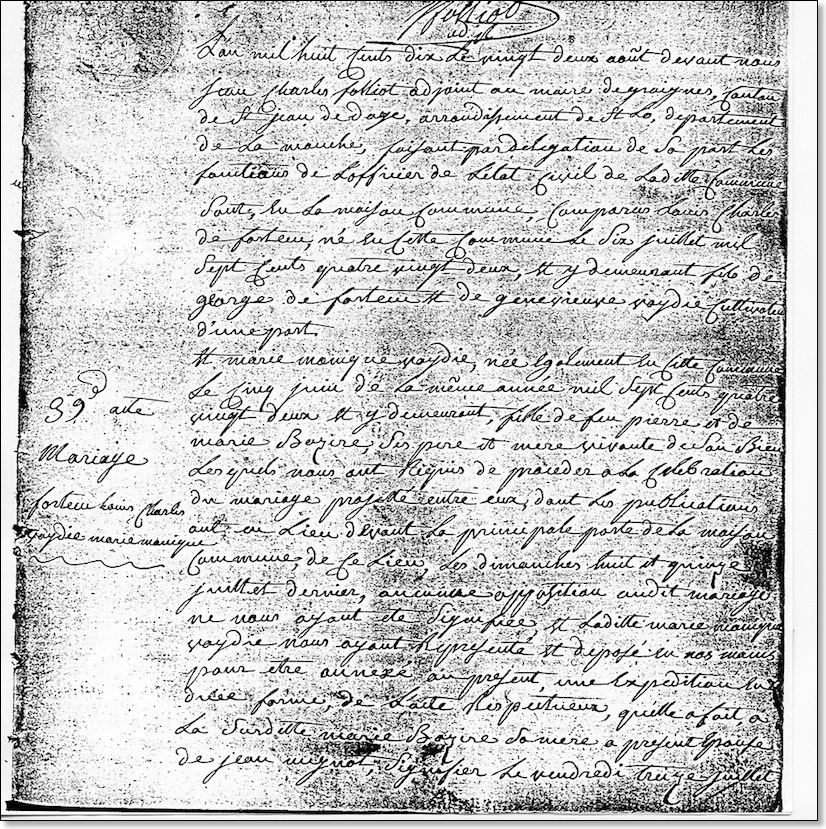 folliot
adjt
L'an mil huit Cents dix Le vingt deux août devant nous
jean Charles folliot adjoint au maire de graignes, Canton
de St jean de daye, arrondissement de St Lo, departement
de La manche, faisant par delegation de Sa part Les
fonctions de L'officier de L'etat Civil de Laditte Commune
Sont, En La maison Commune, Comparus Louis Charles
de forteu, né En Cette Commune Le Six juillet mil
Sept Cents quatre vingt deux, Et y demeurant fils de
george de forteu Et de genevieuve vaydie Cultivateur
d'une part.
Et marie monique vaydie, née Egalement En Cette Commune
Le Cinq juin de La même année mil Sept Cents quatre
vingt deux Et y demeurant, fille de feu pierre et de
marie Bazire, Ses pere et mere vivante de Son Bien
Lesquels nous ont Requis de proceder a La Celebration
du mariage projetté entre eux, dont Les publications
ont eu Lieu devant La principale porte de La maison
Commune, de Ce Lieu, Les dimanches huit et quinze
juillet dernier, aucunne opposition audit mariage
ne nous ayant été Signifiée, Et Laditte marie monique
vaydie nous ayant Représenté Et déposé En nos mains
pour être annexé au present une Expedition En
düee forme, de L'acte Respectueux, qu'elle a fait a
La Surditte marie Bazire Sa mere a present Epouse
de jean mignot, Signifier Le vendredi treize juillet
39e acte
Mariage
forteu Louis Charles
vaydie marie monique